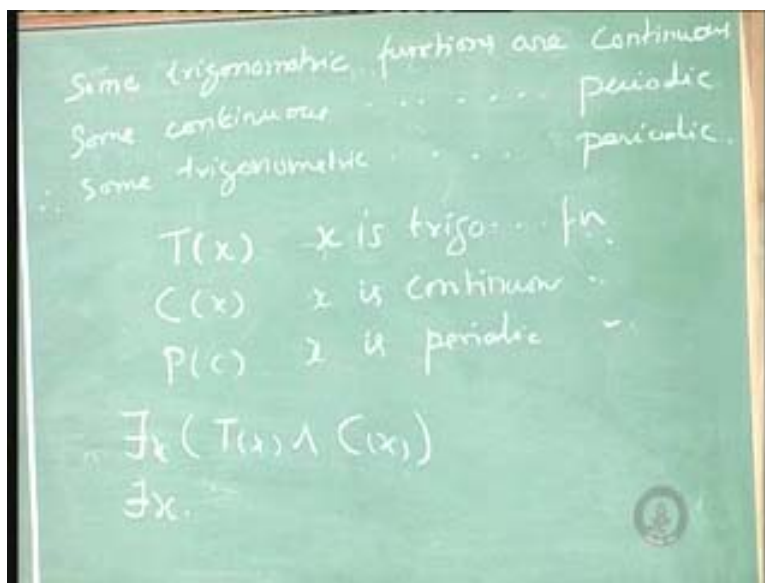 Some trigonometric functions are continuous
Some continuous ........ periodic
∴ some trigonometric .... periodic.
T(x) x is trigo... fn.
C(x) x is continuous "
P(c) x is periodic "
∃x (T(x) ∧ C(x))
∃x.